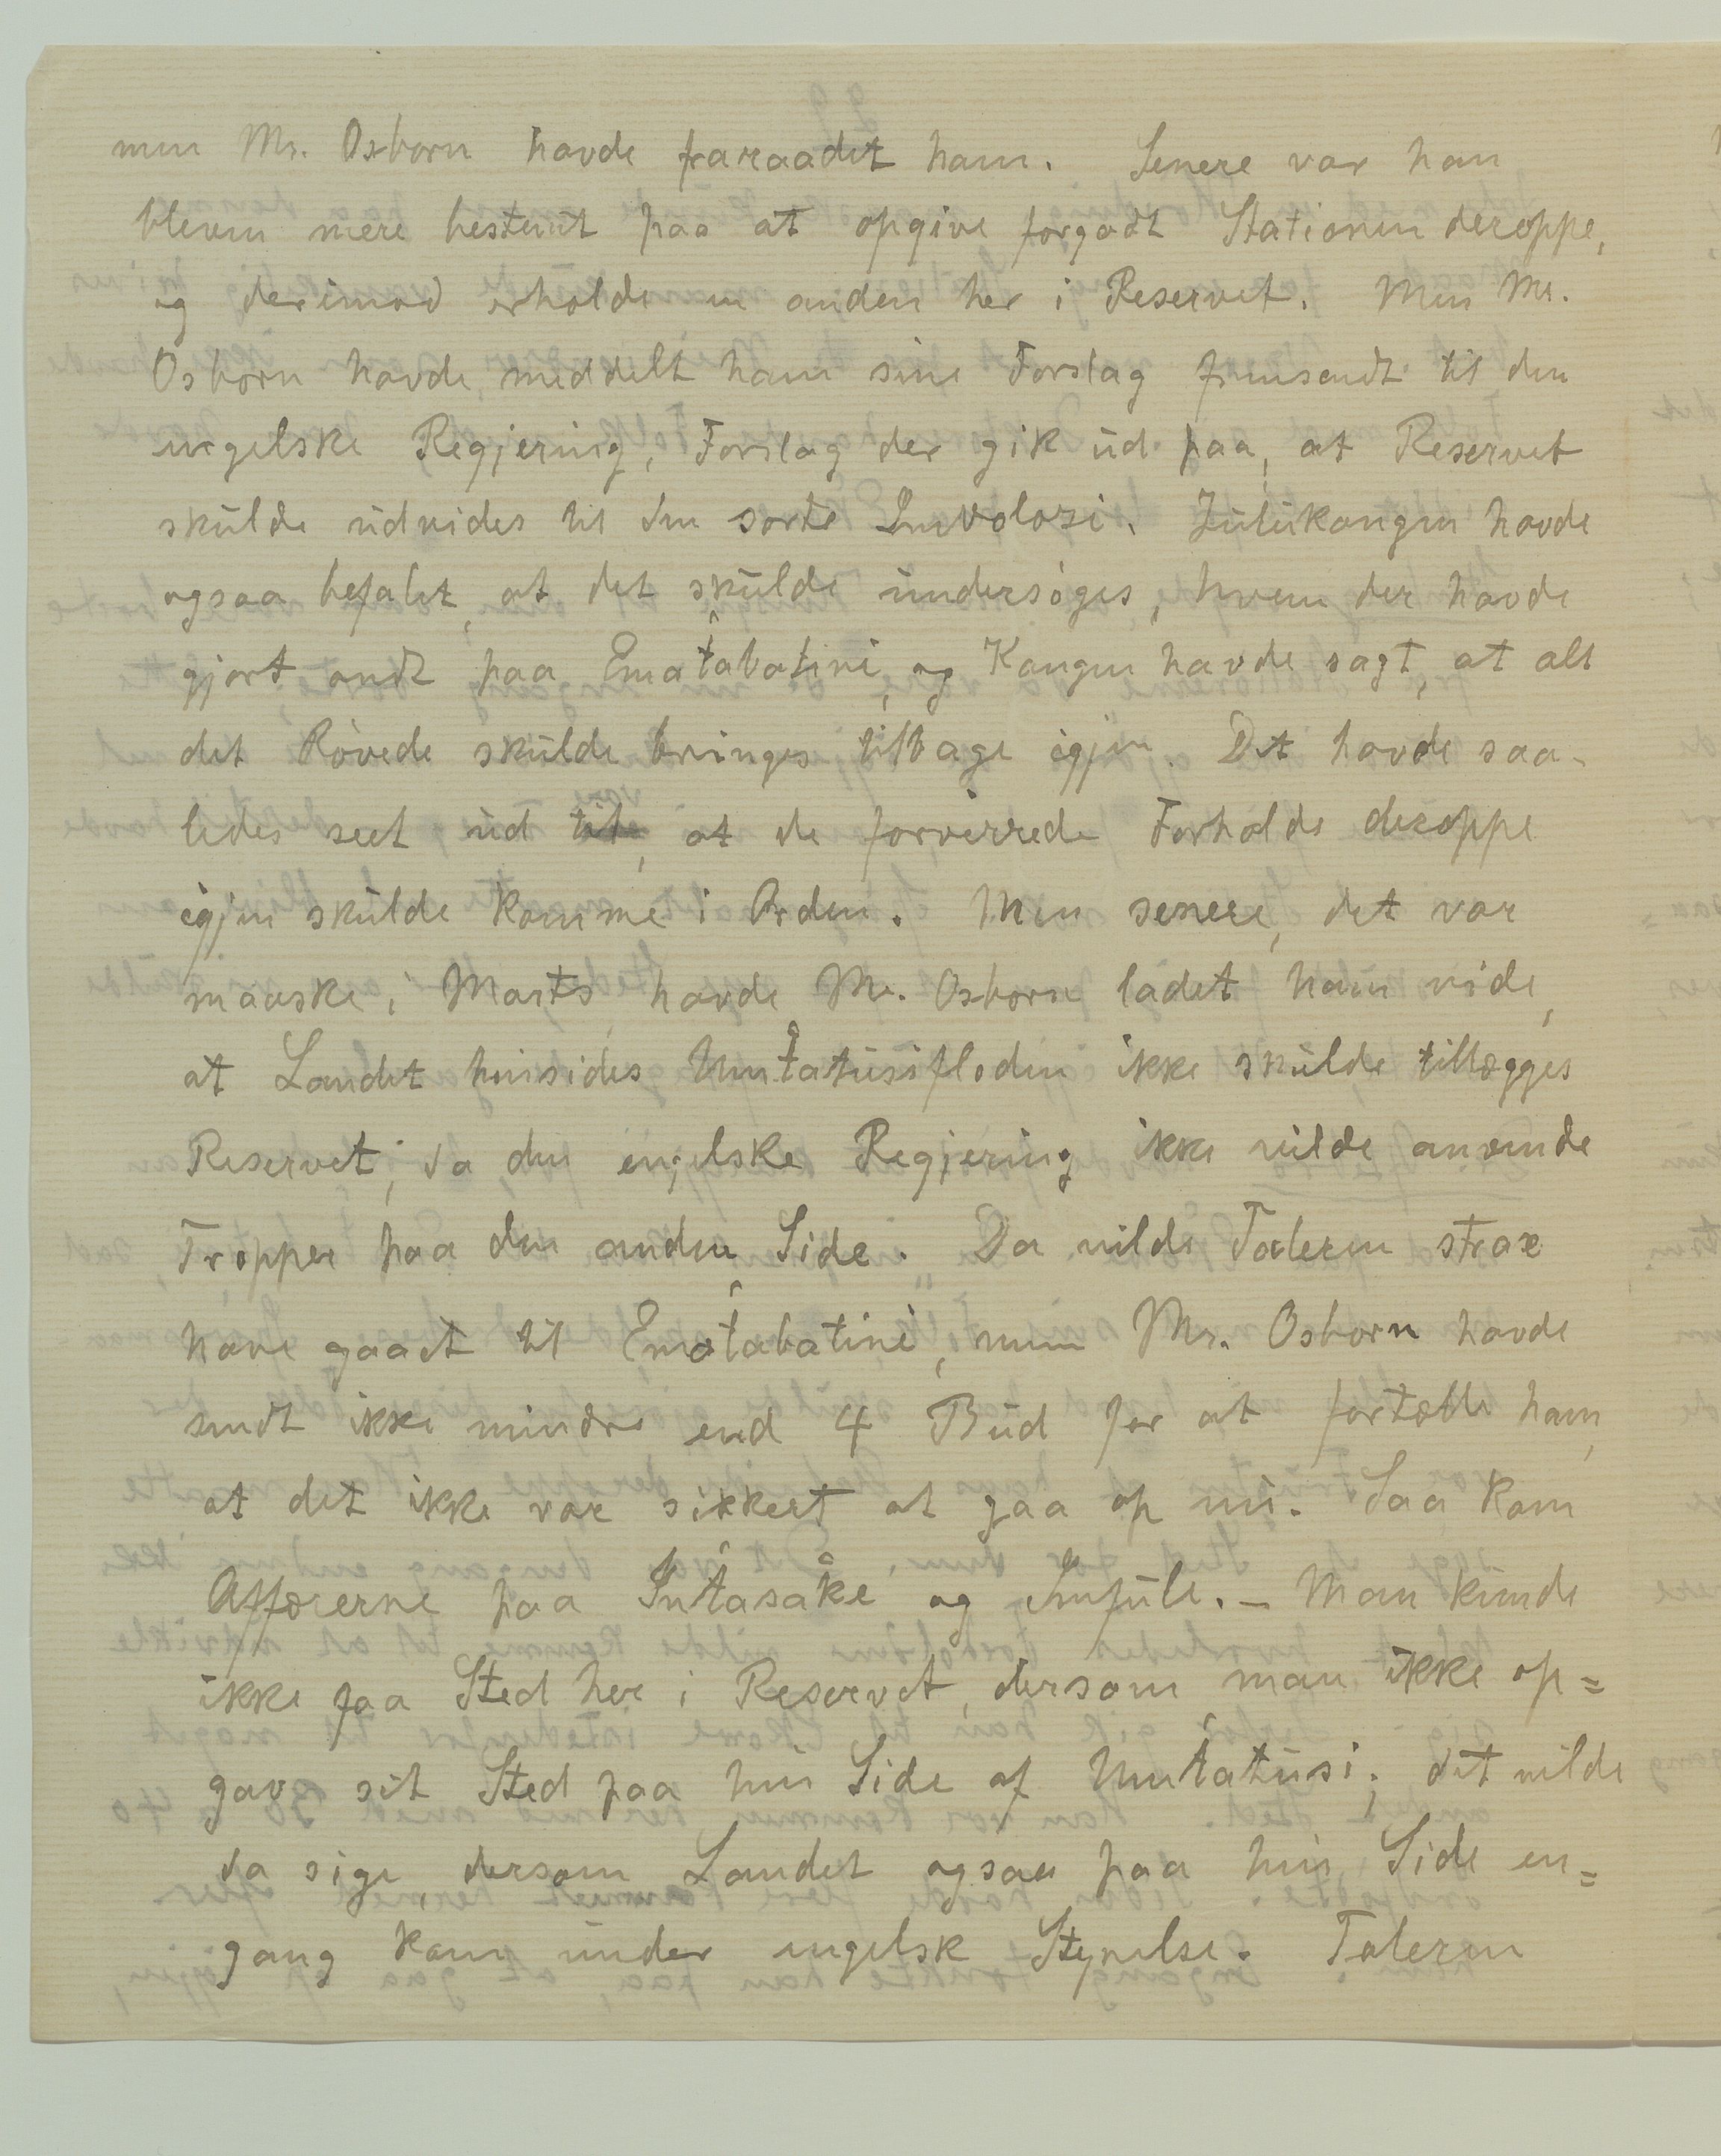 men Mr. Osborn havde fraraadet ham. Senere var han
bleven mere bestemt paa at opgive forgodt Stationen deroppe,
og derimod erholde en anden her i Reservet. Men Mr.
Osborn havde meddelt ham sine Forslag fremsendt til den
engelske Regjering, Forslag der gik ud paa, at Reservet
skulde udvides til den sorte Imvolozi. Zulukongen havde
ogsaa befalet, at det skulde undersøges, hvem der havde
gjort ondt paa Emaṱabatini, og Kongen havde sagt, at alt
det Røvede skulde bringes tilbage igjen. Det havde saa-
ledes seet ud til, at de forvirrede Forholde deroppe
igjen skulde komme i Orden. Men senere, det var
maaske i Marts havde Mr. Osborn ladet ham vide,
at Landet hinsides Umṱatusifloden ikke skulde tillægges
Reservet, da den engelske Regjering ikke vilde anvende
Tropper paa den anden Side. Da vilde Taleren strax
have gaaet til Emaṱabatini, men Mr. Osborn havde
sendt ikke mindre end 4 Bud for at fortælle ham,
at det ikke var sikkert at gaa op nu. Saa kom
Affærerne paa Inṱasake og Imfule. - Man kunde
ikke faa Sted her i Reservet, dersom man ikke op=
gav sit Sted paa hin Side af Umṱatusi; det vilde
da sige dersom Landet ogsaa paa hin Side en=
gang kom under engelsk Styrelse. Taleren